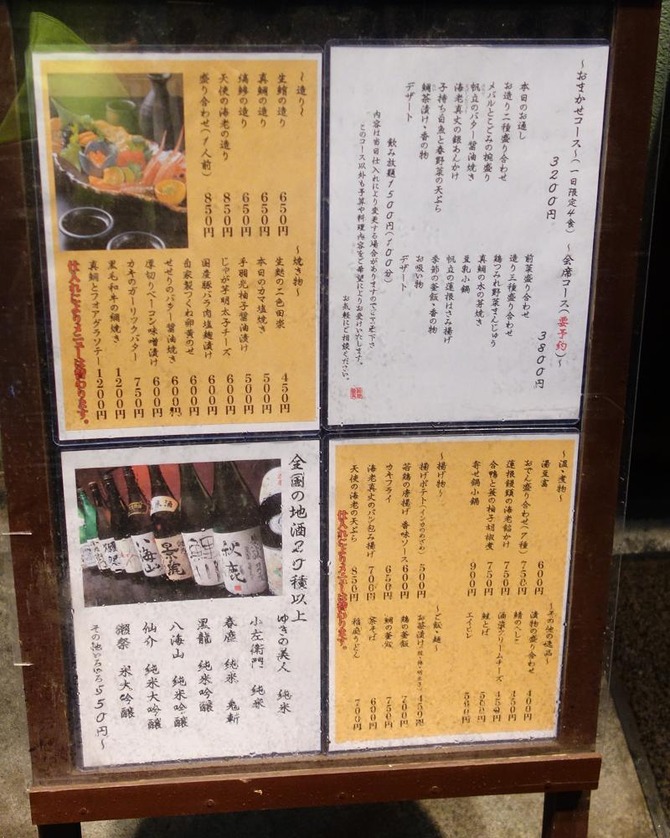 ～おまかせコース～(一日限定4食)
3200円
本日のお通し
お造り二種盛り合わせ
メバルとこごみの椀盛り
帆立のバター醤油焼き
海老真丈の銀あんかけ
子持ち白魚と春野菜の天ぷら
鯛茶漬け・香の物
デザート
～会席コース(要予約)～
3800円
前菜盛り合わせ
造り三種盛り合わせ
鶏つみれ野菜まんじゅう
真鯛の木の芽焼き
豆乳小鍋
帆立の蓮根はさみ揚げ
季節の釜飯・香の物
お吸い物
デザート
飲み放題1500円(100分)
内容は当日仕入れにより変更する場合がありますのでご了承下さい
このコース以外も予算や料理内容をご希望によりお受けいたします。
お気軽にご相談ください。
～造り～
生鮪の造り 650円
真鯛の造り 650円
縞鯵の造り 650円
天使の海老の造り 850円
盛り合わせ(1人前) 850円
～焼き物～
生麩の二色田楽 450円
本日のカマ塩焼き 500円
手羽先柚子醤油漬け 500円
じゃが芋明太子チーズ 600円
国産豚バラ肉塩麹漬け 600円
自家製つくね卵黄のせ 600円
せせりのバター醤油焼き 600円
厚切りベーコン味噌漬け 600円
カキのガーリックバター 750円
黒毛和牛の網焼き 1200円
真鯛とフォアグラソテー 1200円
仕入れによりメニューは変わります。
～温・煮物～
湯豆富 600円
おでん盛り合わせ(7種) 750円
蓮根饅頭の海老餡かけ 750円
合鴨と葱の柚子胡椒煮 750円
寄せ鍋小鍋 900円
～その他の逸品～
漬物の盛り合わせ 400円
鯖のへしこ 450円
酒盗クリームチーズ 450円
鮭とば 500円
エイヒレ 500円
～揚げ物～
揚げポテト(インカのめざめ) 500円
若鶏の唐揚げ 香味ソース 600円
カキフライ 650円
海老真丈のパン包み揚げ 700円
天使の海老の天ぷら 850円
～ご飯・麺～
お茶漬け 450円
鶏の釜飯 700円
鯛の釜飯 750円
茶そば 600円
稲庭うどん 700円
仕入れによりメニューは変わります。
全国の地酒20種以上
ゆきの美人 純米
小左衛門 純米
春鹿 純米 鬼斬
黒龍 純米吟醸
八海山 純米吟醸
仙介 純米大吟醸
獺祭 米大吟醸
その他いろいろ550円～
八海山
秋鹿